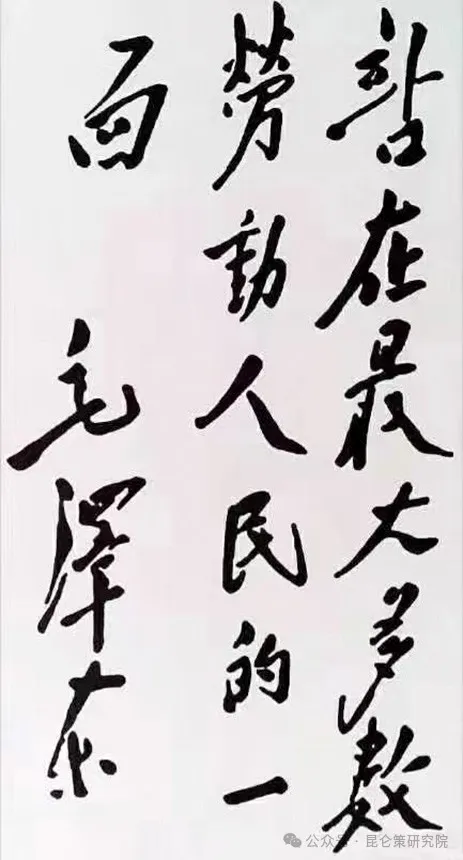 站在最大多数
勞動人民的一
面 毛澤东
公众号 · 昆仑策研究院